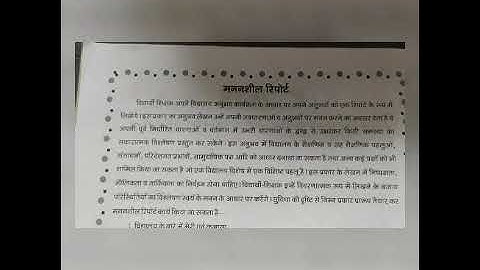 मननशील रिपोर्ट
विद्यार्थी शिक्षक अपने विद्यालय अनुभव कार्यक्रम के आधार पर अपने अनुभवों को एक रिपोर्ट के रूप में
लिखेंगे। इस प्रकार का अनुभव लेखन उन्हें अपनी अवधारणाओं व अनुभवों पर मनन करने का अवसर देता है व
अपनी पूर्व निर्धारित धारणाओं व वर्तमान में उभरी धारणाओं के द्वन्द्व से उभरकर किसी समस्या का
सकारात्मक विश्लेषण प्रस्तुत कर सकेंगे। इस अनुभव में विद्यालय के शैक्षणिक व सह शैक्षणिक पहलुओं,
संसाधनों, परिवेशगत प्रभावों, सामुदायिक पक्ष आदि को आधार बनाया जा सकता है तथा अन्य कई प्रश्नों को भी
शामिल किया जा सकता है जो उस विद्यालय विशेष में एक विशिष्ट पहलू है। इस प्रकार के लेखन में निष्पक्षता,
मौलिकता व तार्किकता का निर्वहन होना चाहिए। विद्यार्थी-शिक्षक इन्हें विवरणात्मक रूप में लिखने के बजाय
परिस्थितियों का विश्लेषण स्वयं के मनन के आधार पर करेंगे। सुविधा की दृष्टि से निम्न प्रकार प्रारूप तैयार कर
मननशील रिपोर्ट कार्य किया जा सकता है
1. विद्यालय के बारे में मेरी पूर्व कल्पना